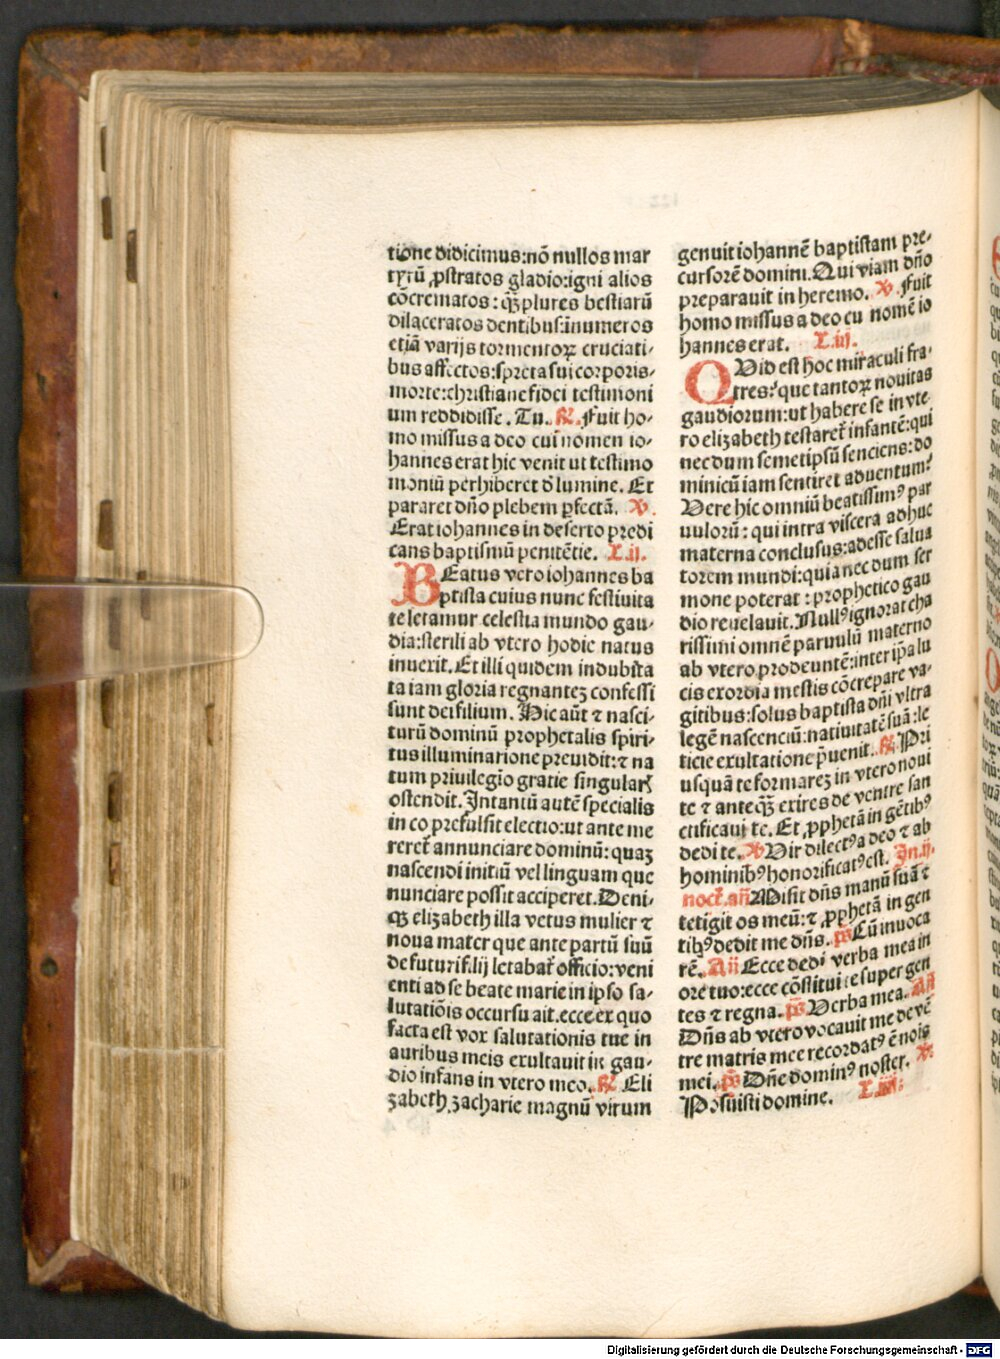 tione didicimus:nõ nullos mar
tyꝝ ꝓstratos gladio:igni alios
cõcrematos: qꝫplures bestiarũ
dilaceratos dentibus:inumeros
etiã varijs tormentoꝝ cruciati-
bus affectos:spreta sui corporis-
morte:christiane fidei testimoni
um reddidisse. Tu. ꝶ. Fuit ho-
mo missus a deo cui nomen io-
hannes erat hic venit ut testimo
moniũ perhiberet d̃ lumine. Et
pararet dño plebem ꝑfectã. ℣.
Erat iohannes in deserto predi
cans baptismũ penitẽtie. L.ij.
BEatus vero iohannes ba
ptista cuius nunc festiuita
te letamur celestia mundo gau-
dia:sterili ab vtero hodie natus
inuexit. Et illi quidem indubita
ta iam gloria regnantez confessi
sunt dei filium. Hic aũt ⁊ nasci-
turũ dominũ prophetalis spiri-
tus illuminatione preuidit:⁊ na
tum priuilegio gratie singularꝭ
ostendit. Intantũ autẽ specialis
in eo prefulsit electio:ut ante me
reret̃ annunciare dominũ: quaꝫ
nascendi initiũ vel linguam que
nunciare possit acciperet. Deni-
qꝫ elizabeth illa vetus mulier ⁊
noua mater que ante partũ suũ
de futuri filij letabat̃ officio:veni
enti ad se beate marie in ipso sa-
lutatiõis occursu ait. ecce ex quo
facta est vox salutationis tue in
auribus meis exultauit in gau-
dio infans in vtero meo. ꝶ. Eli
zabeth zacharie magnũ virum
genuit iohannẽ baptistam pre-
cursorẽ domini. Qui viam dño
preparauit in heremo. ℣. Fuit
homo missus a deo cu nomẽ io
hannes erat. L.iij.
QVid est hoc miraculi fra-
tres: que tantoꝝ nouitas
gaudiorum:ut habere se in vte-
ro elizabeth testaret̃ infantẽ:qui
necdum semetipsũ senciens:do
minicũ iam sentiret aduentum:
Vere hic omniũ beatissimꝰ par
uulorũ: qui intra viscera adhuc
materna conclusus:adesse salua
torem mundi:quia nec dum ser
mone poterat: prophetico gau
dio reuelauit. Nullꝰ ignorat cha
rissimi omnẽ paruulũ materno
ab vtero prodeuntẽ:inter ip̃a lu
cis exordia mestis cõcrepare va-
gitibus:solus baptista dñi vltra
legẽ nascenciũ:natiuitatẽ suã:le
ticie exultatione p̃uenit. ꝶ. Pri
usquã te formarez in vtero noui
te ⁊ anteqꝫ exires de ventre san
ctificaui te. Et ꝓphetã in gẽtibꝰ
dedi te. ℣. Vir dilectꝰ a deo ⁊ ab
hominibꝰ honorificatꝰ est. In.ij.
noct̃.añ Misit dñs manũ suã ⁊
tetigit os meũ: ⁊ ꝓphetã in gen
tibꝰ dedit me dñs. p̃s Cũ inuoca
rẽ. Añ Ecce dedi verba mea in
ore tuo:ecce cõstitui te super gen
tes ⁊ regna. p̃s Verba mea. Añ
Dñs ab vtero vocauit me de vẽ
tre matris mee recordatꝰ ẽ nois
mei. p̃s Dñe dominꝰ noster. ℣.
Posuisti domine. L.iiij.
Digitalisierung gefördert durch die Deutsche Forschungsgemeinschaft - DFG